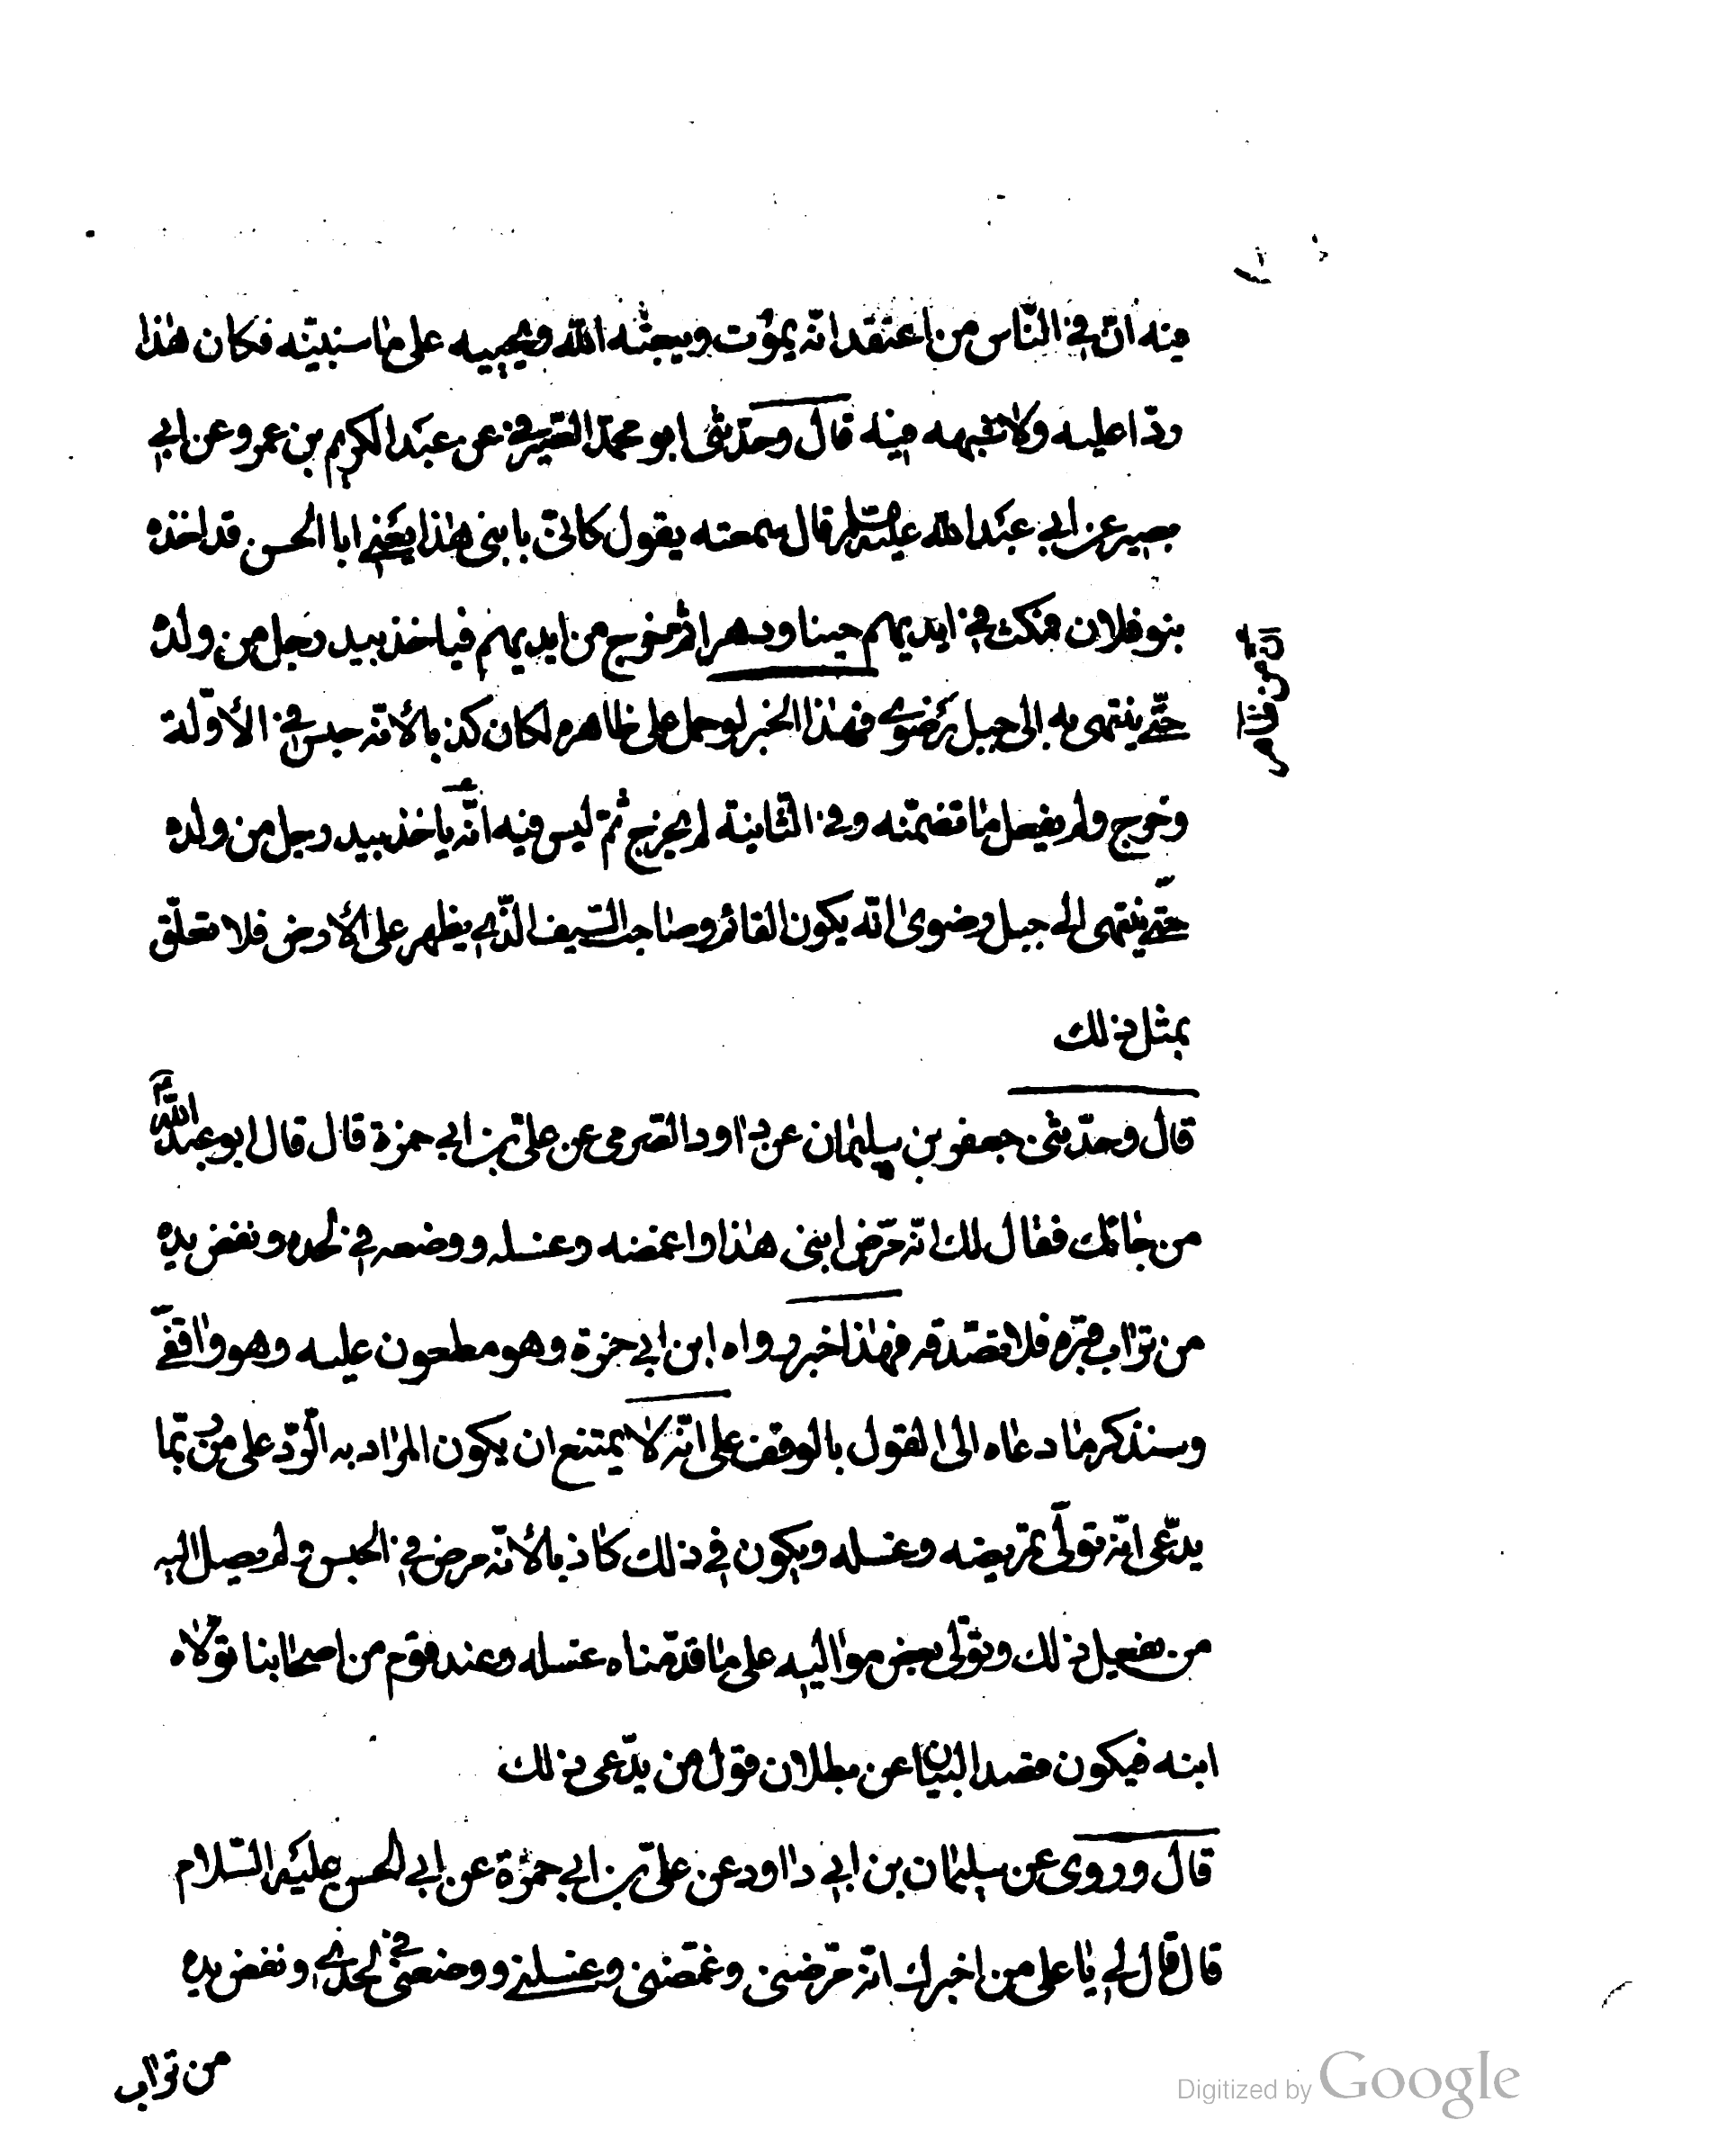 منه انّ في النّاس من اعتقد انّه يموت ويبعثه الله ويحييه على ما سنبيّنه فكان هذا
ردّا عليه ولا شبهه فيه قال وحدّثني ابو محمّد الصّيرفي عن عبد الكريم بن عمرو عن ابي
بصير عن ابي عبد الله عليه السّلم قال سمعته يقول كانّي بابني هذا يعني ابا الحسن قد اخذه
بنو فلان فمكث في ايديهم حينا ودهرا ثم خرج من ايديهم فياخذ بيد رجل من ولده
حتّى ينتهى به الى جبل رضوى فهذا الخبر لو حمل على ظاهره لكان كذبا لأنّه حبس في الأوّلة
وخرج ولم يفعل ما تضمّنه وفي الثّانية لم يخرج ثمّ ليس فيه انّه ياخذ بيد رجل من ولده
حتّى ينتهى الى جبل رضوى انّه يكون القائم وصاحب السّيف الّذي يظهر على الأرض فلا تعلّق
بمثل ذلك
قال وحدّثني جعفر بن سليمان عن داود الصرمي عن عليّ بن ابي حمزة قال قال ابو عبد الله ع
من جائك فقال لك انّه مرّض ابني هذا واغمضه وغسله ووضعه في لحده ونفض يده
من تراب قبره فلا تصدّقه فهذا خبر رواه ابن ابي حمزة وهو مطعون عليه وهو واقفيّ
وسنذكر ما دعاه الى القول بالوقف على انّه لا يمتنع ان يكون المراد به الّردّ على من ربّما
يدّعى انّه تولّى تمريضه وغسله ويكون في ذلك كاذبا لأنّه مرض في الحبس ولم يصل اليه
من يفعل ذلك وتولّى بعض مواليه على ما قدّمناه غسله وعند قوم من اصحابنا تولّاه
ابنه فيكون قصد البيان عن بطلان قول من يدّعى ذلك
قال وروى عن سليمان بن ابي داود عن عليّ بن ابي حمزة عن ابي الحسن عليه السّلام
قال قال لي يا علي من اخبرك انّه مرّضني وغمّضني وغسلني ووضعني في لحدي ونفض يده
من تراب